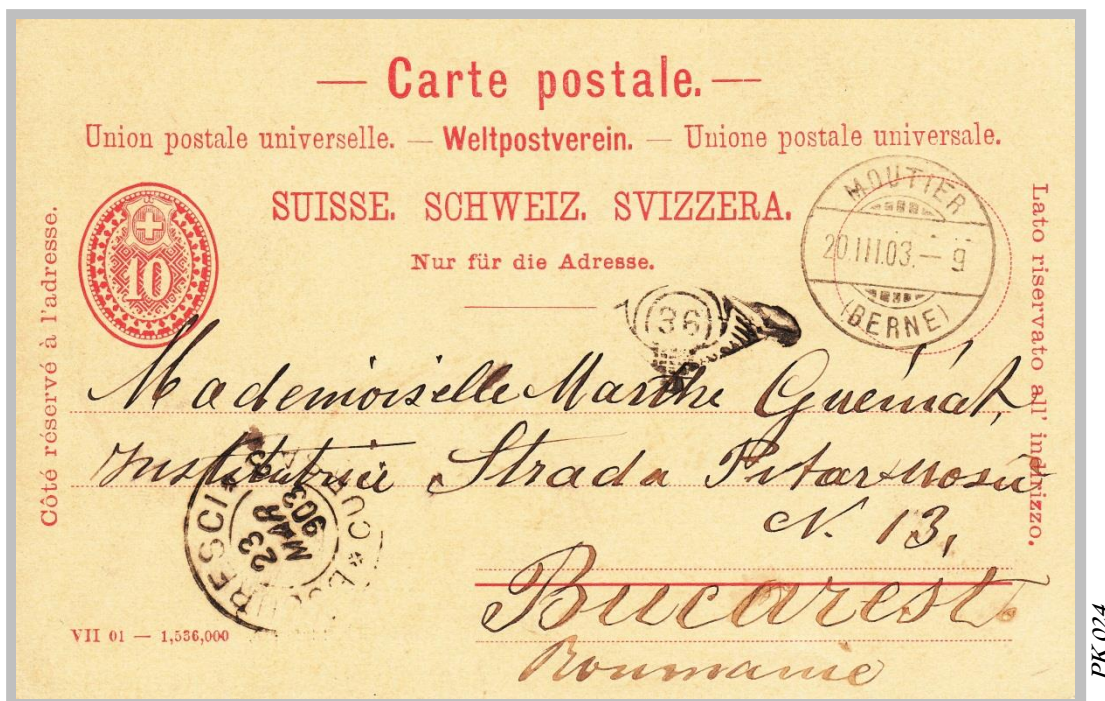 — Carte postale. —
Union postale universelle. — Weltpostverein. — Unione postale universale.
SUISSE. SCHWEIZ. SVIZZERA.
Nur für die Adresse.
Côté réservé à l'adresse.
Lato riservato all' indirizzo.
10
MOUTIER
20.III.03.— 9
(BERNE)
36
Mademoiselle Marthe Guéniat,
Institutrice Strada Pitar-Mosu
N. 13,
Bucarest
Roumanie
23
MAR
903
VII 01 — 1,536,000
PK 024